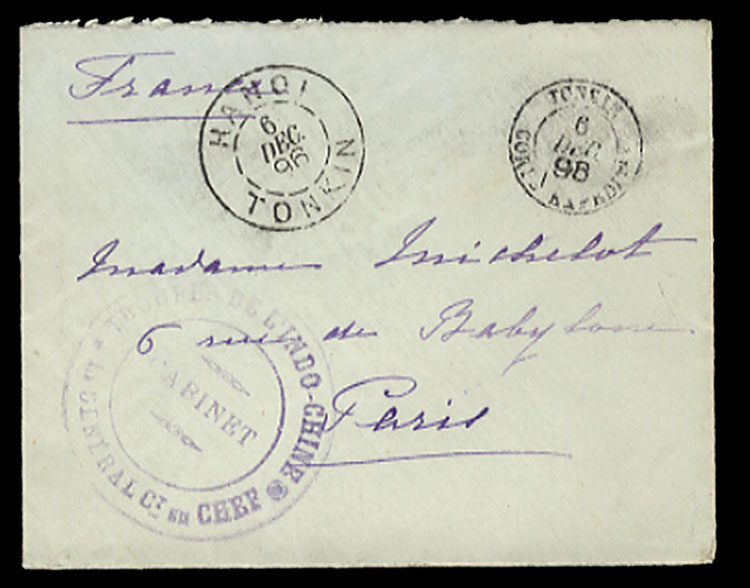 France
HANOI
6
DEC.
96
TONKIN
TONKIN
6
DEC.
98
CORR. D'ARMÉES
Madame Michelot
6 rue de Babylone
Paris
TROUPES DE L'INDO-CHINE
LE GÉNÉRAL Ct EN CHEF
CABINET